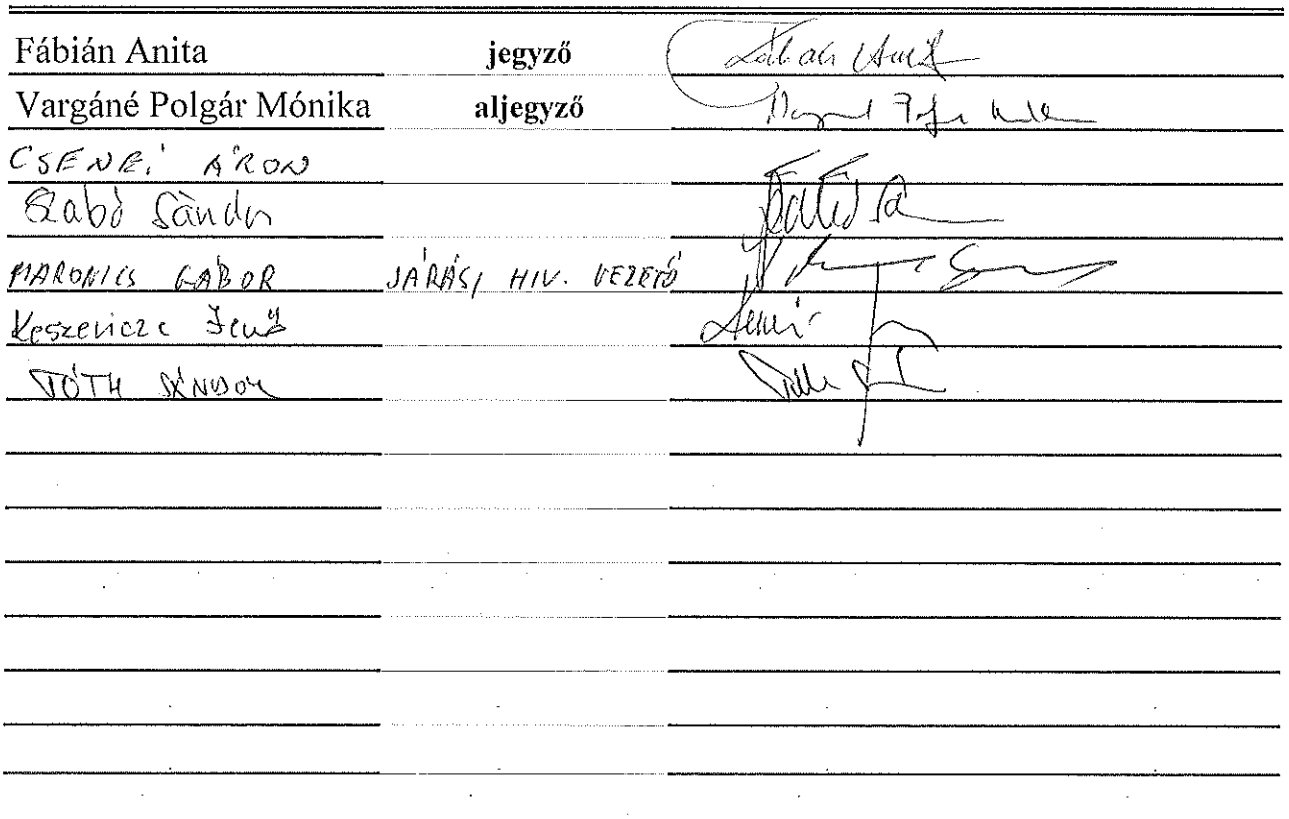 Fábián Anita jegyző Fábián Anita
Vargáné Polgár Mónika aljegyző
CSENEI ÁRON
Szabó Sándor
MARONICS GÁBOR JÁRÁSI HIV. VEZETŐ
Keszericze Jenő
TÓTH SÁNDOR